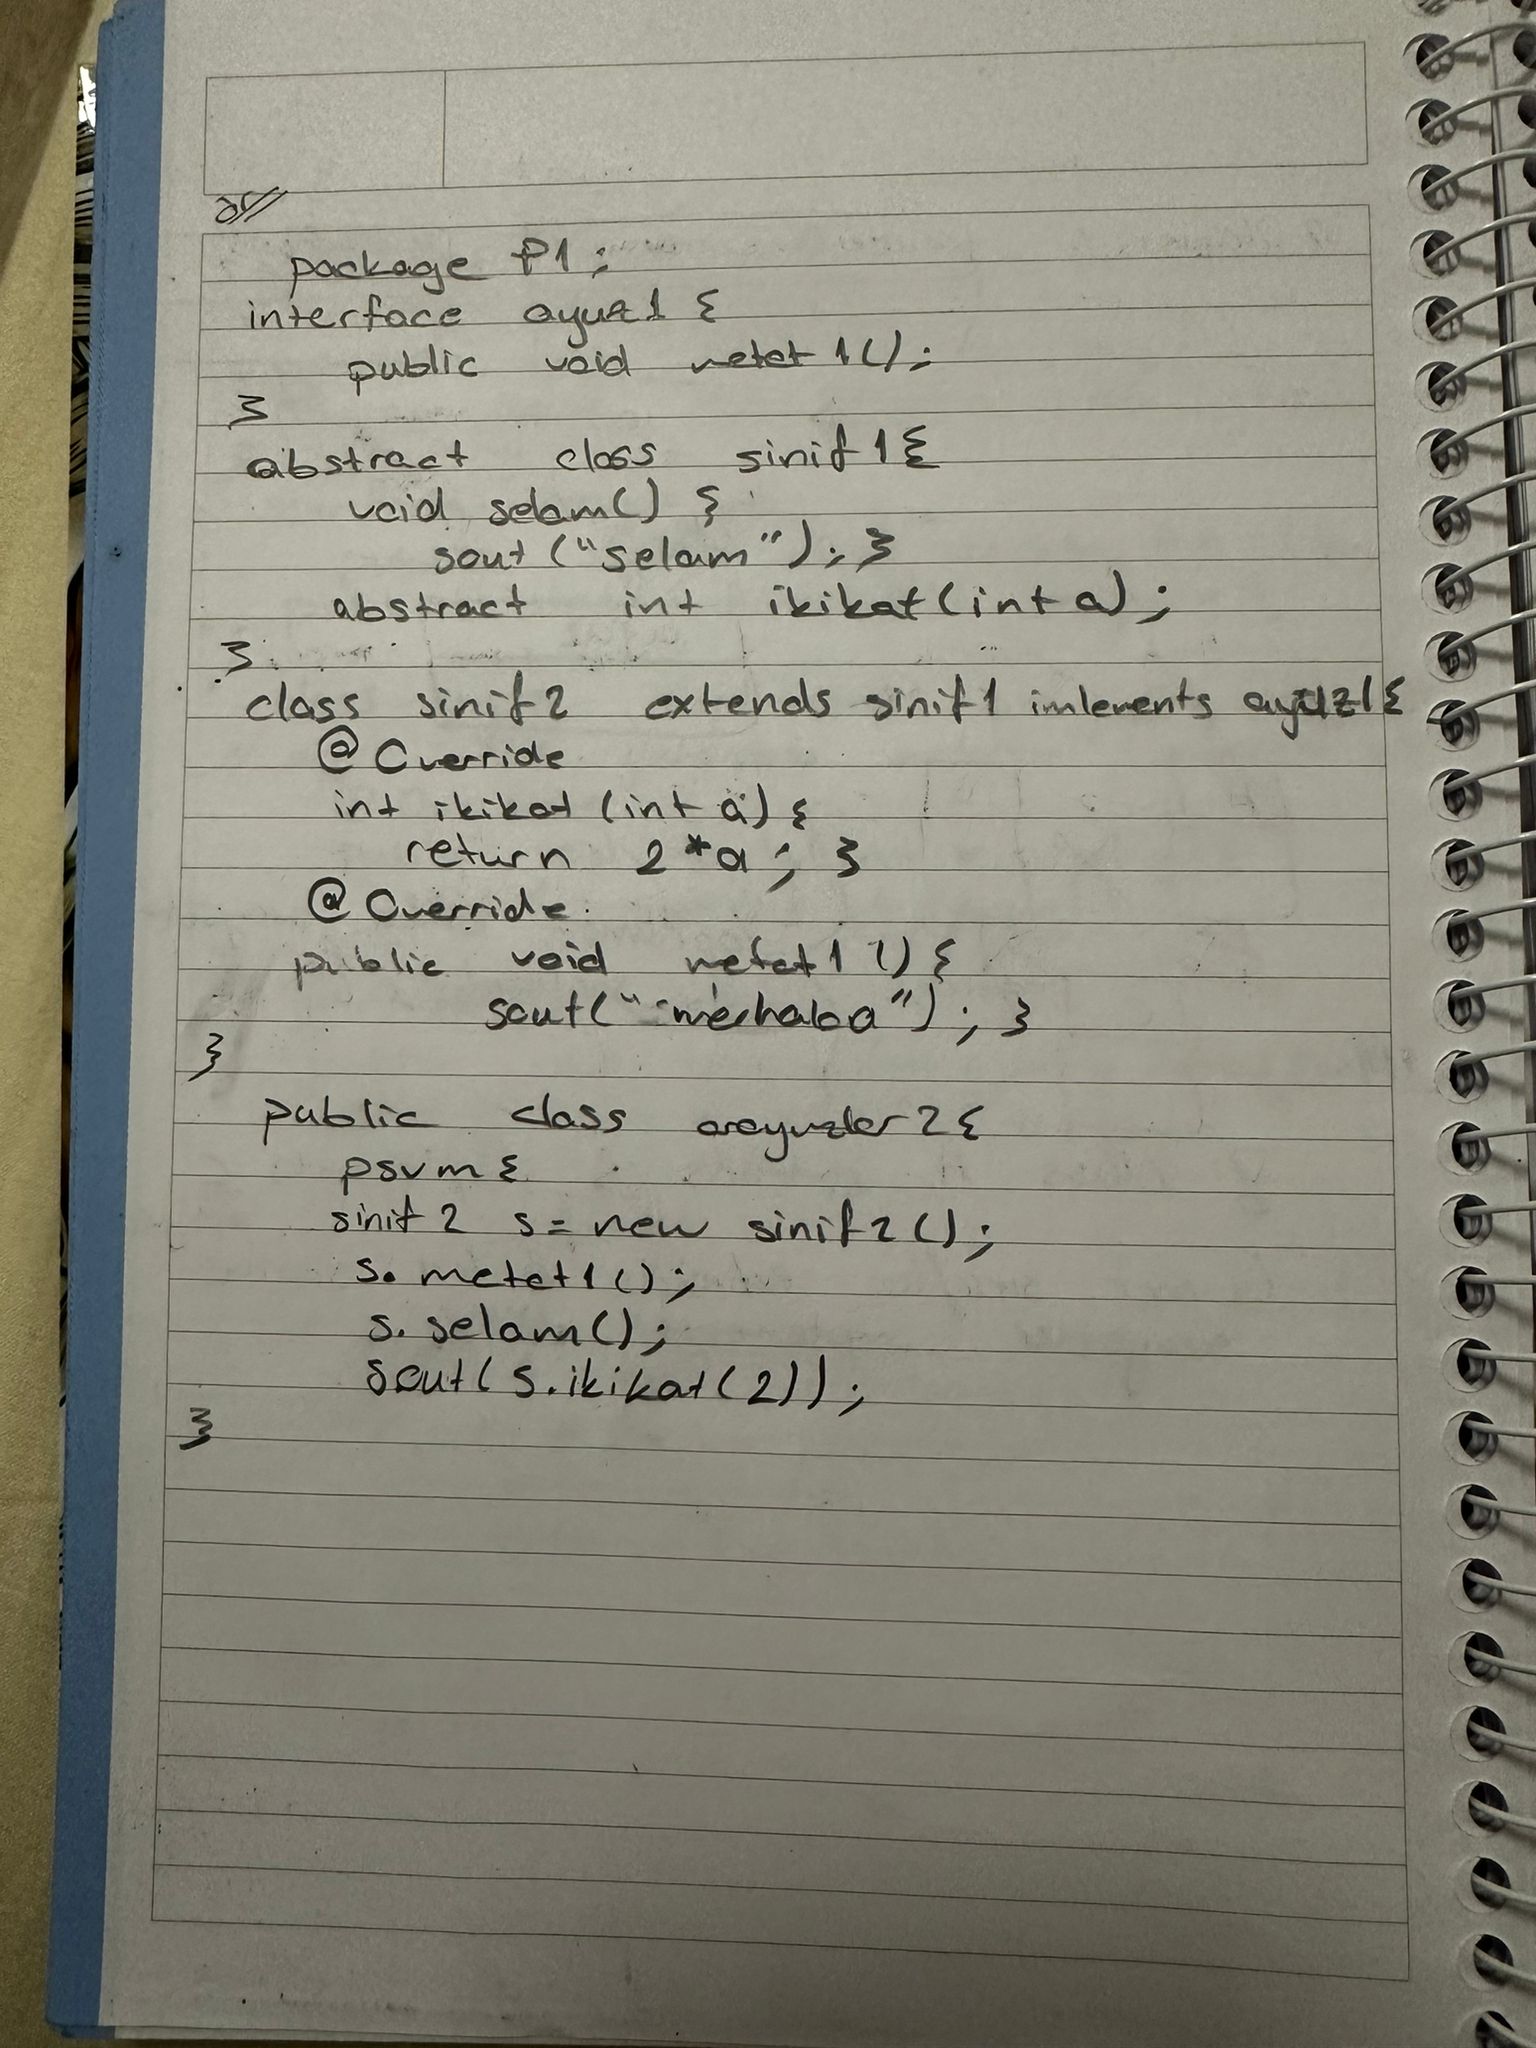 ör//
package P1;
interface ayuz1 {
public void metot1();
}
abstract class sinif1{
void selam() {
sout ("selam"); }
abstract int ikikat(int a);
}
class sinif2 extends sinif1 imlements ayüz1{
@Override
int ikikat (int a) {
return 2*a; }
@Override
public void metot1 () {
sout("merhaba"); }
}
public class arayuzler2{
psvm {
sinif2 s = new sinif2();
s.metot1();
s.selam();
sout(s.ikikat(2));
}